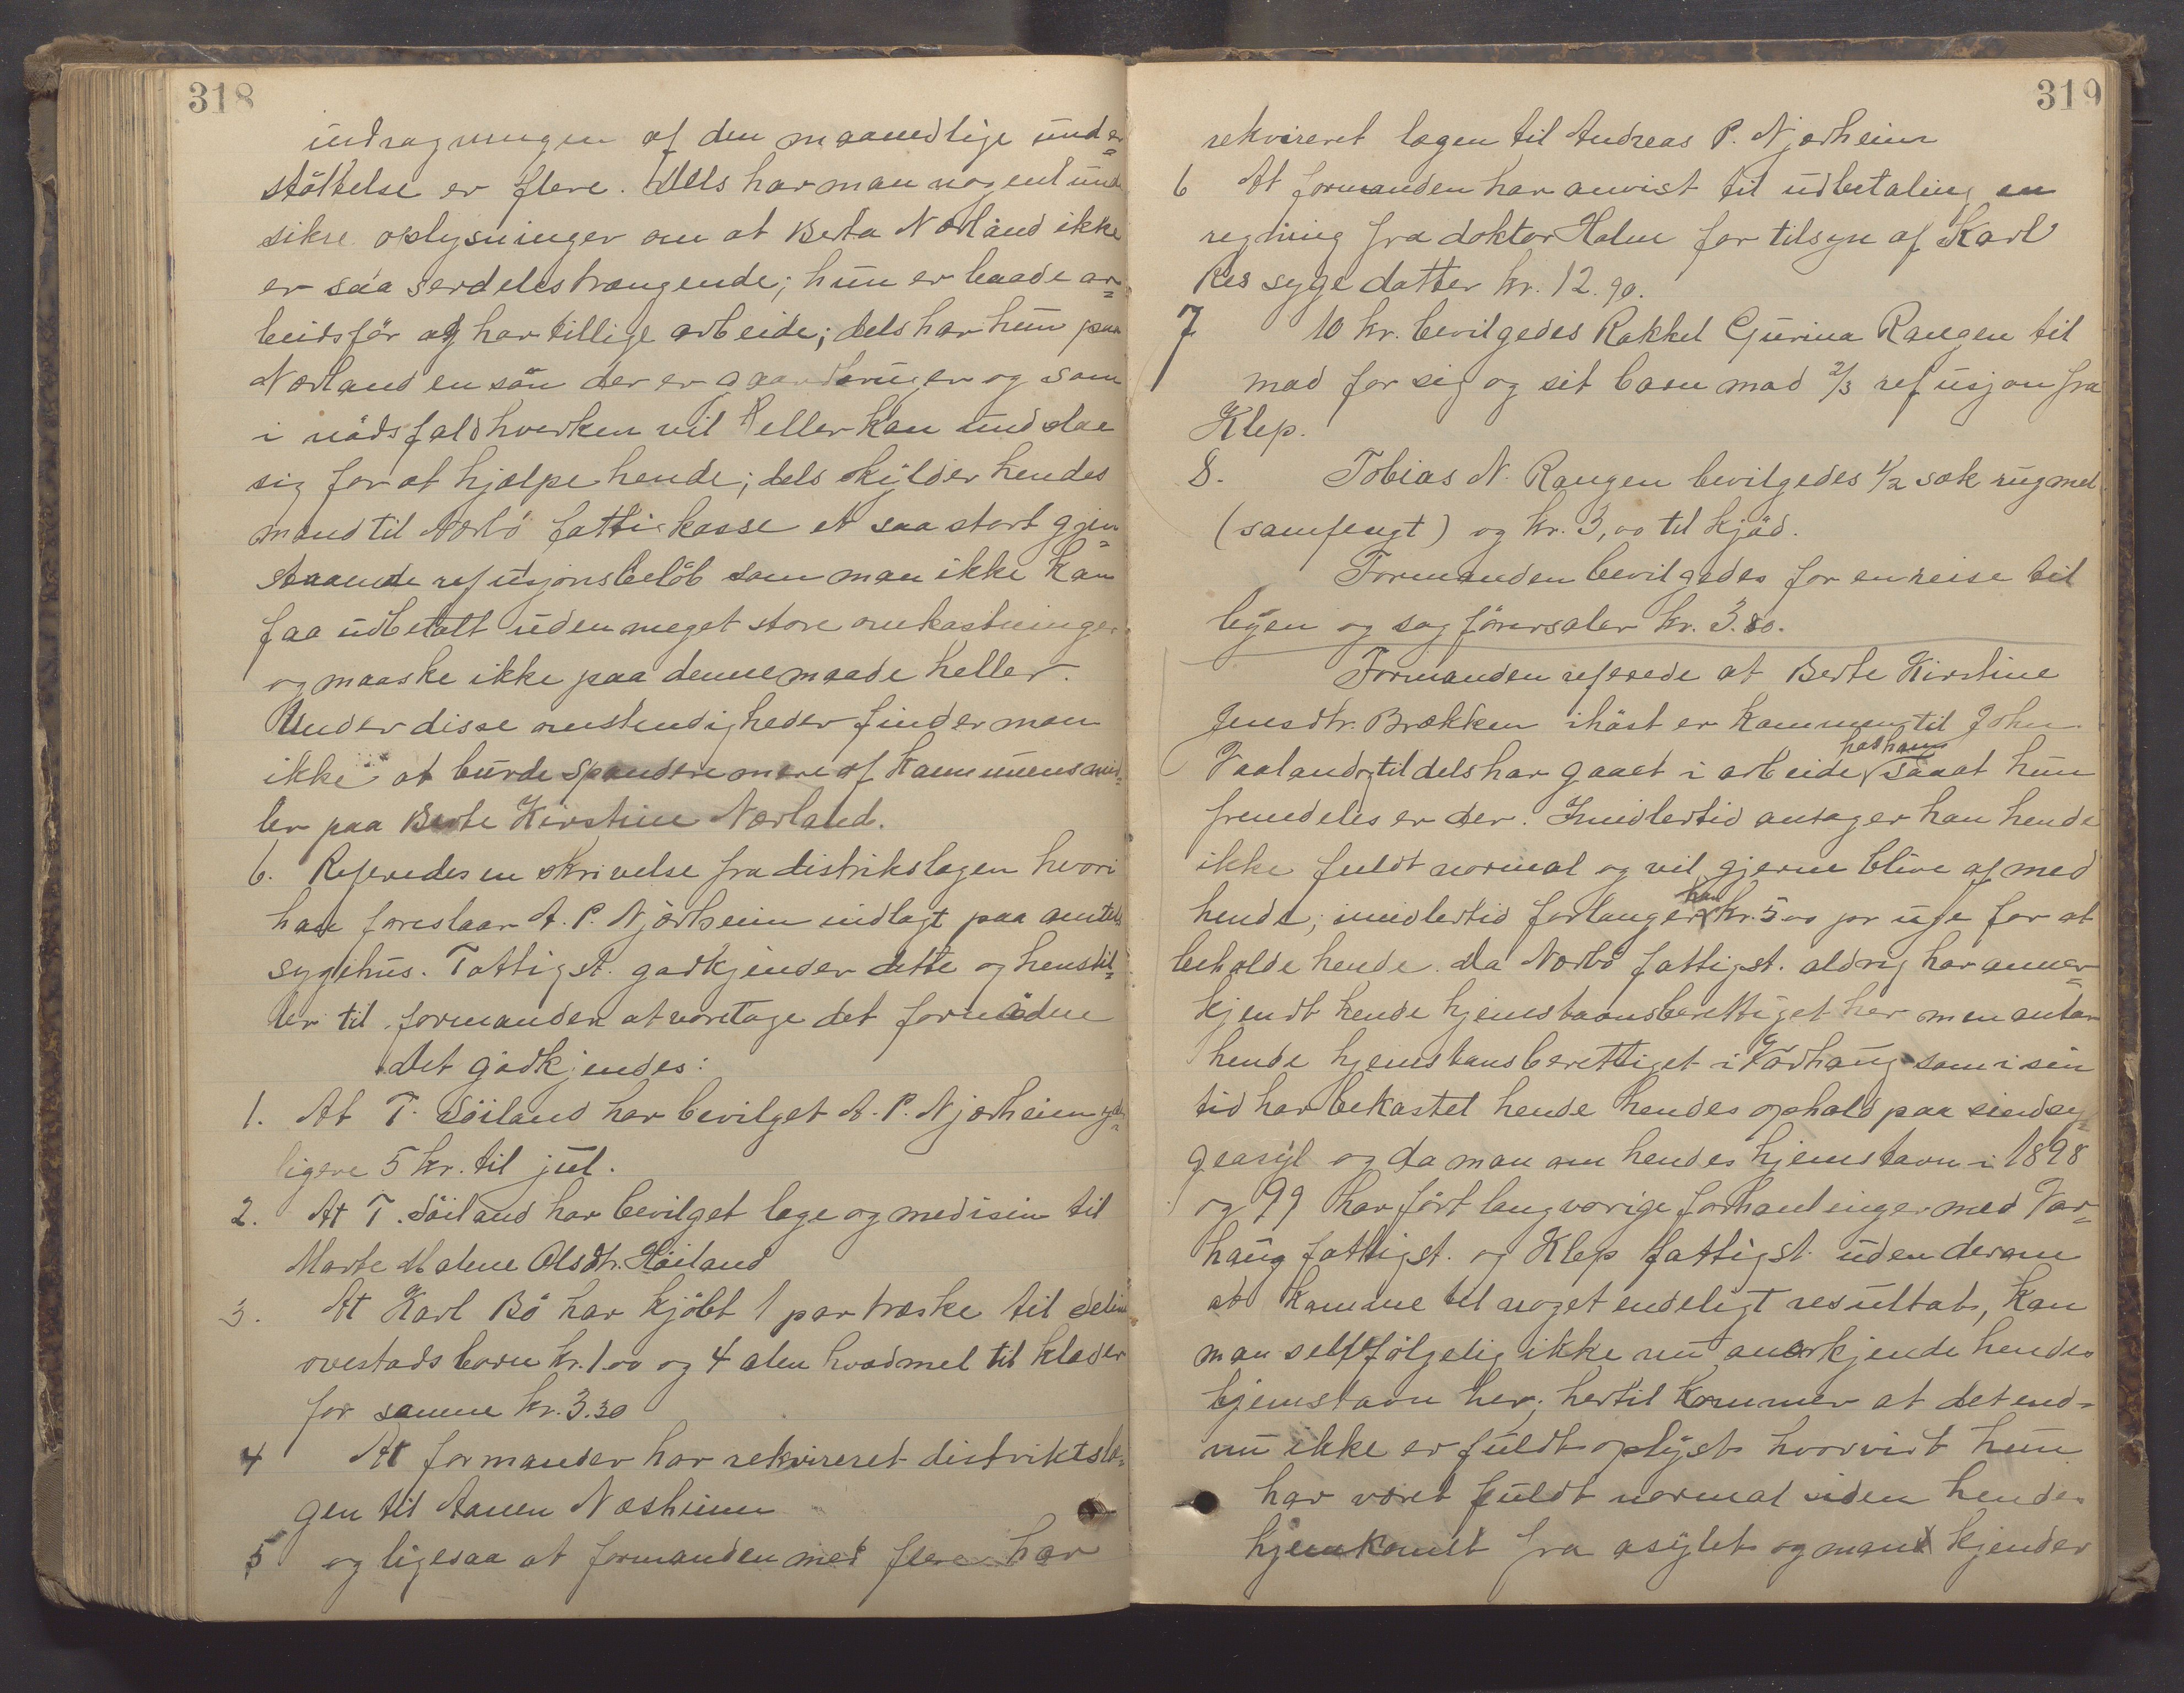 318
indragningen af den maanedlige under=
stöttelse er flere. Dels har man nogenlund
sikre oplysninger om at Berta Nærland ikke
er saa serdeles trængende; hun er baade ar=
beidsför og har tillige arbeide; dels har hun paa
Nærland en sön der er gaardbruger og som
i nödsfald hverken vil heller kan undslae
sig for at hjælpe hende; dels skylder hendes
mand til Nærbö fattikasse et saa stort gjen=
staaende refusjonsbelöb som man ikke kan
faa udbetalt uden meget store omkastninger
og maaske ikke paa denne maade heller.
Under disse omstendigheder finder man
ikke at burde spandere mere af kommunens mid=
ler paa Berte Kirstine Nærland.
6. Referedes en skrivelse fra distrikslægen hvori
han foreslaar A. P. Njærheim indlagt paa amtets
sygehus. Fattigst. godkjender dette og henstil=
ler til formanden at voretage det fornödne
Det godkjendes:
1. At T. Söiland har bevilget A. P. Njærheim yd=
ligere 5 kr. til jul.
2. At T. Söiland har bevilget læge og medisin til
Marte Malene Olsdtr. Höiland
3. At Karl Bö har kjöbt 1 par træske til Seline
ovestads barn kr. 1.00 og 4 alen hvadmel til klæder
for samme kr. 3.30
4 At formanden har rekvireret distriktslæ=
gen til Aanen Næsheim
5 og ligesaa at formanden med flere har
319
rekvireret lægen til Andreas P. Njærheim
6 At formanden har anvist til udbetaling en
regning fra doktor Holm for tilsyn af Karl
Res syge datter kr. 12.90.
7 10 kr. bevilgedes Rakkel Gurina Rangen til
mad for sig og sit barn mod 2/3 refusjon fra
Klep.
8. Tobias N. Rangen bevilgedes 1/2 sæk rugmel
(samfengt) og kr. 3,00 til kjöd.
Formanden bevilgedes for en reise til
byen og sagförersalær kr. 3.80.
Formanden referede at Berte Kirstine
Jensdtr. Brækken ihöst er kommen til John
Vaaland og tildels har gaaet i arbeide hos ham saa at hun
fremdeles er der. Imidlertid antager han hende
ikke fuldt normal og vil gjerne blive af med
hende; imidlertid forlanger han kr. 5 00 pr uge for at
beholde hende. Da Nærbö fattigst. aldrig har anner=
kjendt hende hjemstavnsberettiget her men antar
hende hjemstavnsberettiget i Varhaug som i sin
tid har bekastet hende hendes ophold paa sindsy
geasyl og da man om hendes hjemstavn i 1898
og 99 har fört langvarige forhandlinger med Var=
haug fattigst. og Klep fattigst. uden derom
at komme til noget endeligt resultat, kan
man selfölgelig ikke nu anerkjende hendes
hjemstavn her; hertil kommer at det end=
nu ikke er fuldt oplyst hvorvidt hun
har været fuldt normal siden hendes
hjemkomst fra asylet og man kjender